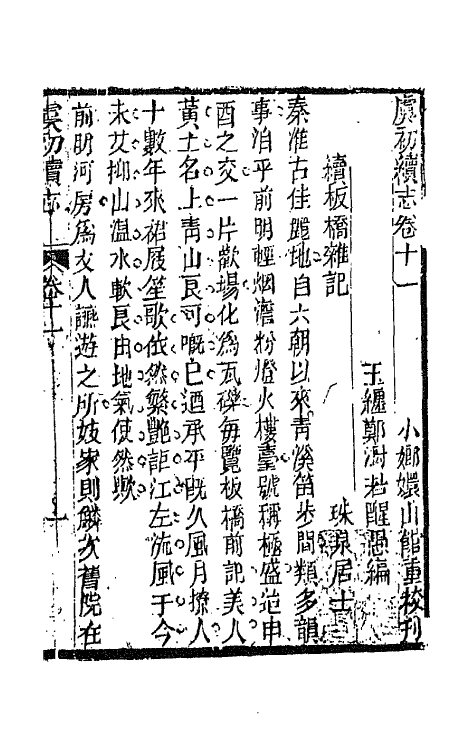 虞初續志卷十一
小嫏嬛山館重校刊
玉纏鄭澍若醒愚編
續板橋雜記
珠泉居士
秦淮古佳麗地自六朝以來青溪笛步間類多韻
事洎乎前明輕烟澹粉燈火樓臺號稱極盛迨申
酉之交一片歡場化為瓦礫每覽板橋前記美人
黃土名士青山良可慨已迺承平既久風月撩人
十數年來裙屐笙歌依然繁艷詎江左流風于今
未艾抑山温水軟良由地氣使然歟
前明河房為文人讌遊之所妓家則鱗次舊院在
虞初續志
卷十一
一